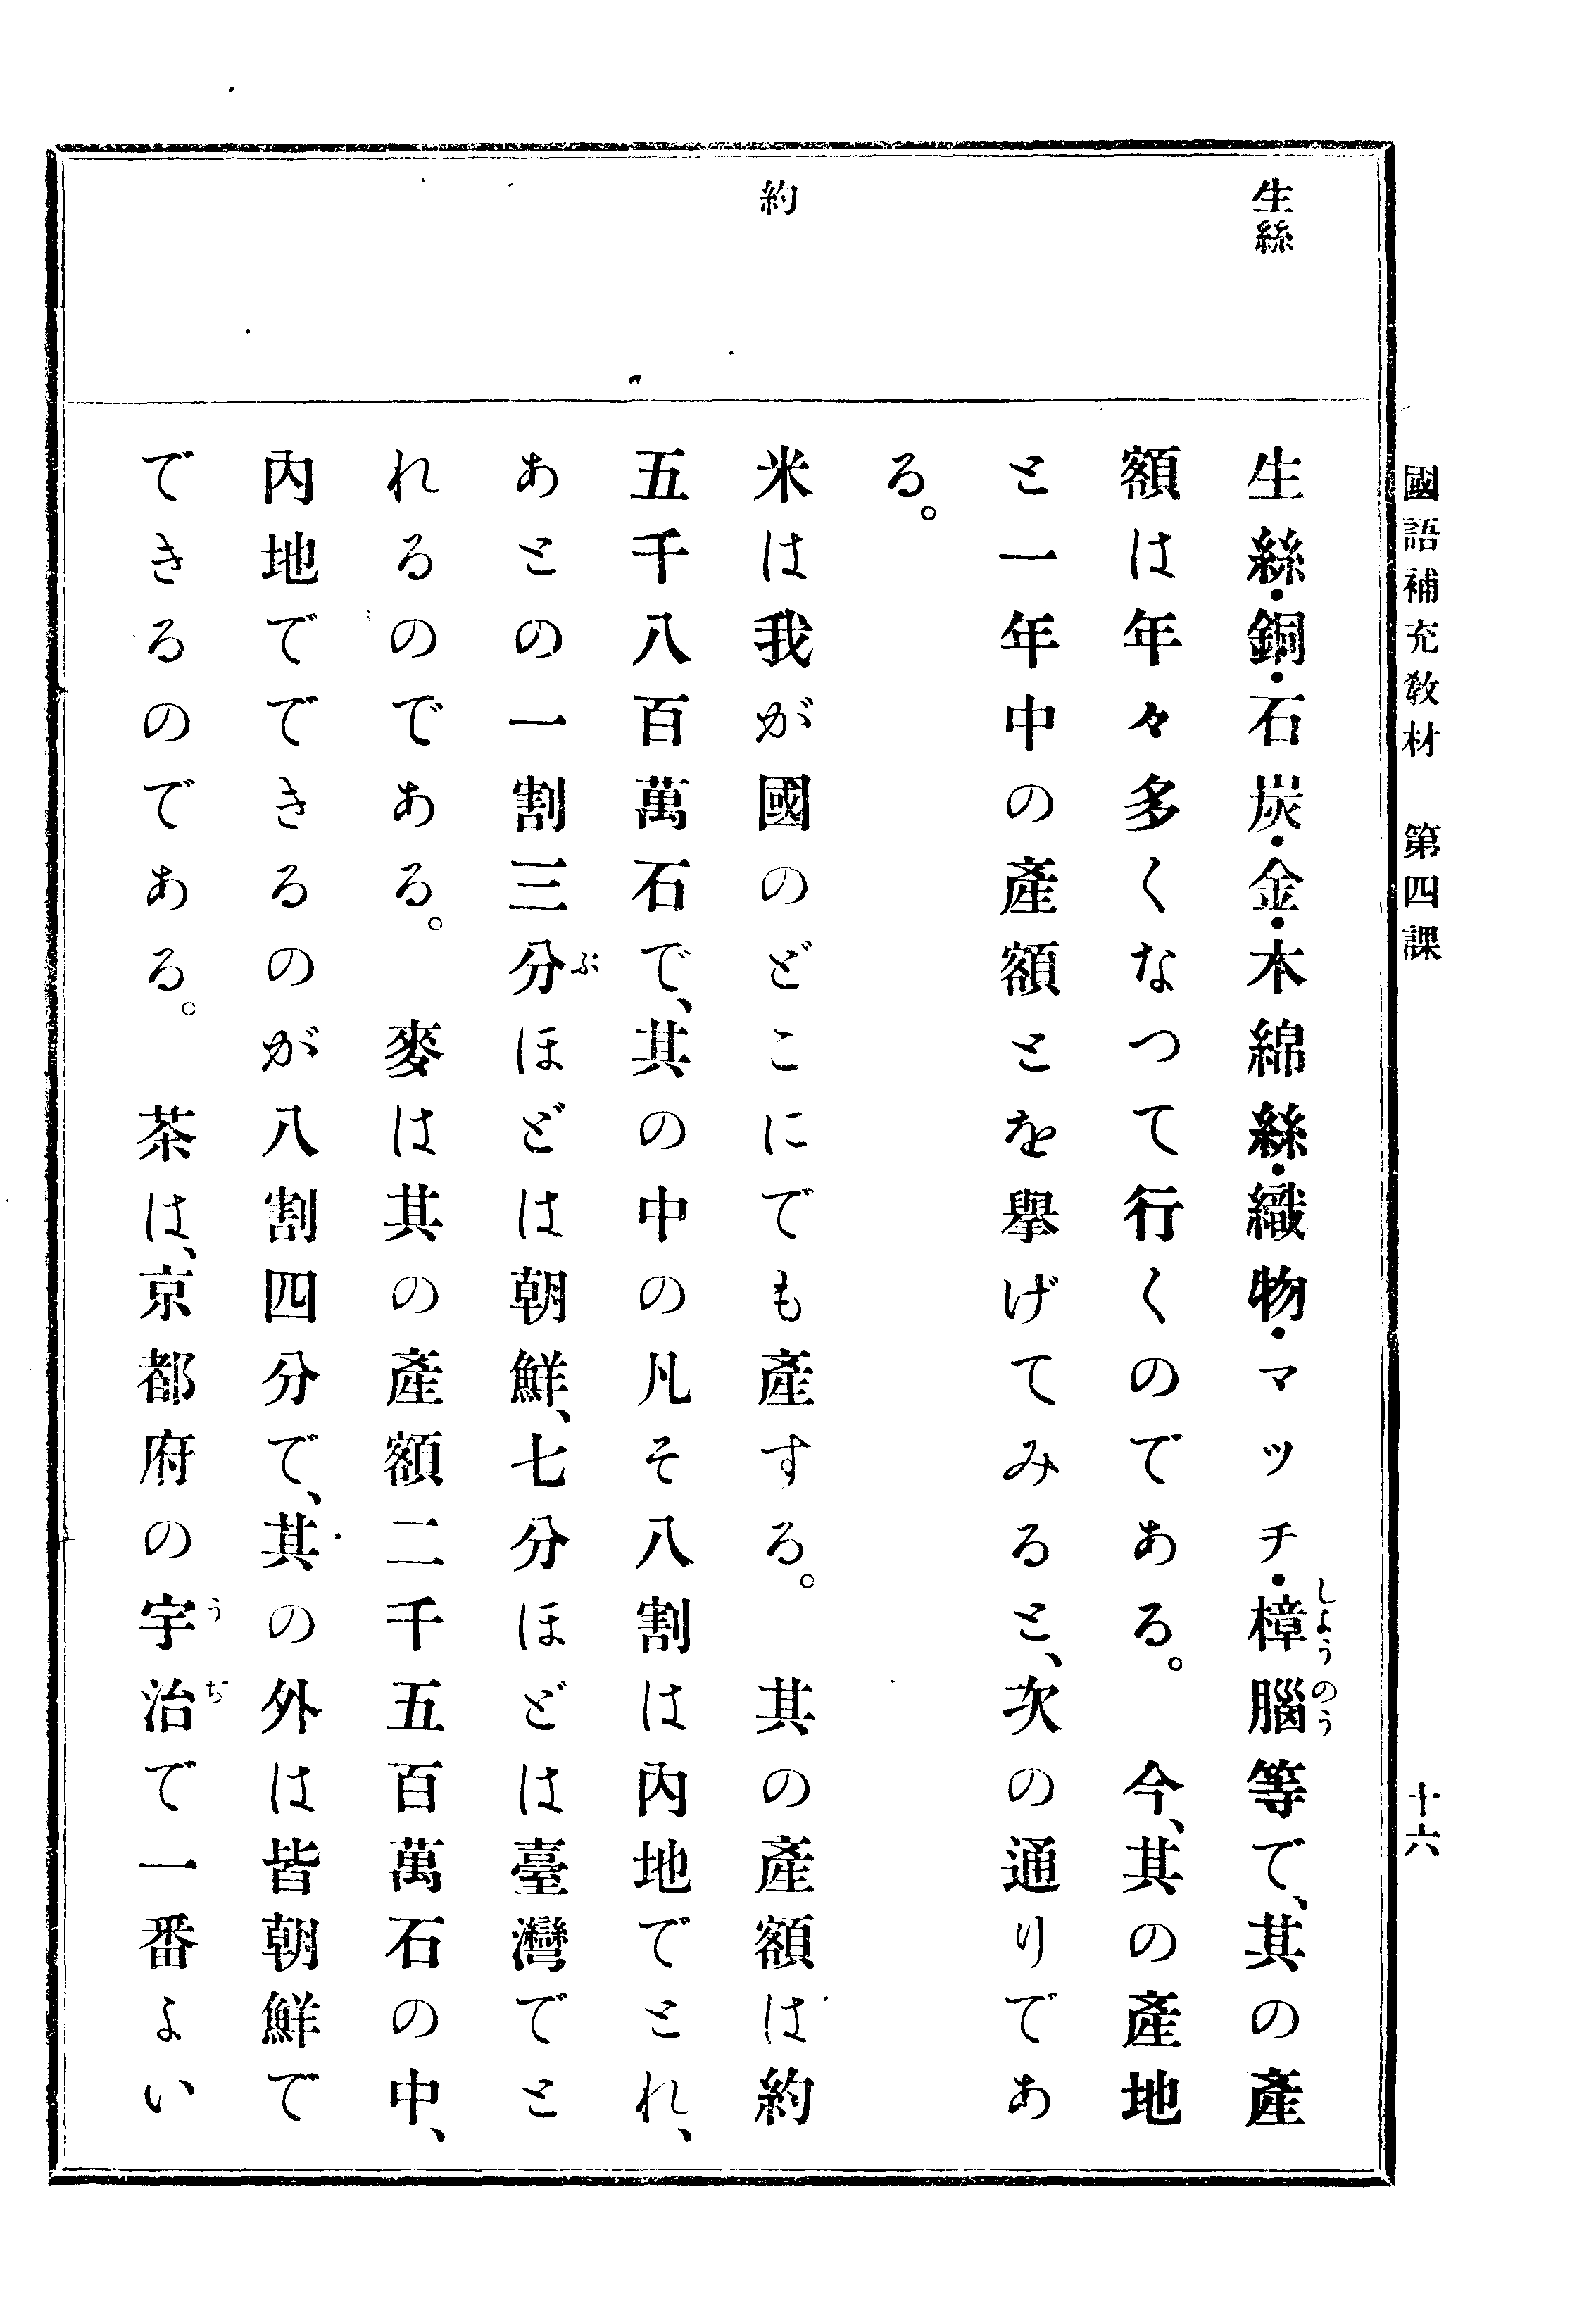 國語補充教材　第四課　十六
生絲
約
生絲・銅・石炭・金・木綿絲・織物・マッチ・樟腦等で、其の產
しようのう
額は年々多くなつて行くのである。　今、其の產地
と一年中の產額とを擧げてみると、次の通りであ
る。
米は我が國のどこにでも產する。　其の產額は約
五千八百萬石で、其の中の凡そ八割は內地でとれ、
あとの一割三分ほどは朝鮮、七分ほどは臺灣でと
ぶ
れるのである。　麥は其の產額二千五百萬石の中、
內地でできるのが八割四分で、其の外は皆朝鮮で
できるのである。　茶は、京都府の宇治で一番よい
うぢ